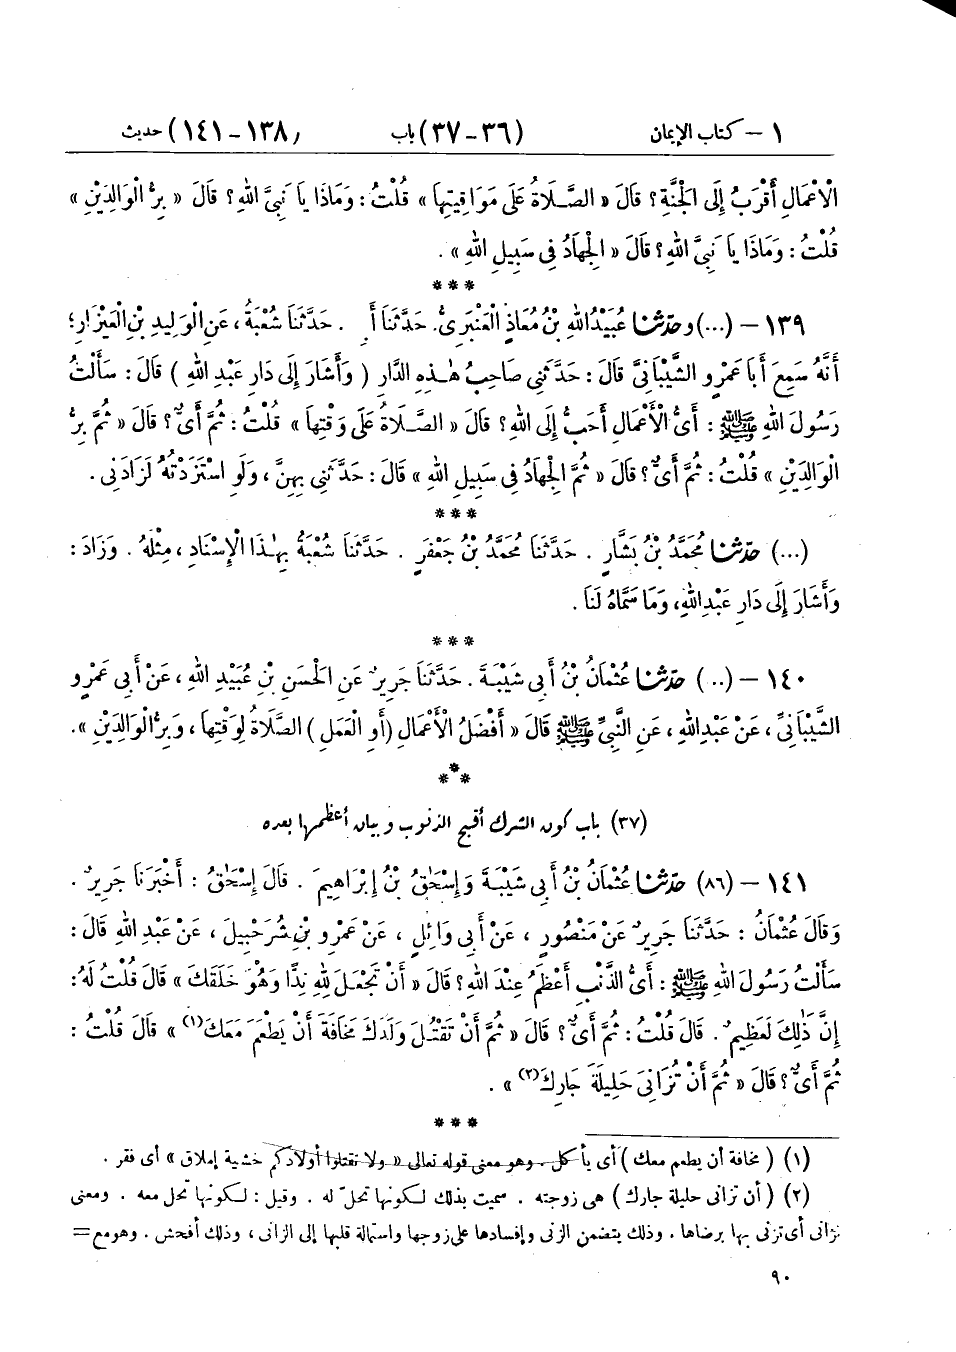 ١ – كتاب الإيمان (٣٦-٣٧) باب (١٣٨-١٤١) حديث
الْأَعْمَالِ أَقْرَبُ إِلَى الْجَنَّةِ؟ قَالَ « الصَّلَاةُ عَلَى مَوَاقِيتِهَا » قُلْتُ : وَمَاذَا يَا نَبِيَّ اللهِ؟ قَالَ « بِرُّ الْوَالِدَيْنِ »
قُلْتُ : وَمَاذَا يَا نَبِيَّ اللهِ؟ قَالَ « الْجِهَادُ فِي سَبِيلِ اللهِ » .
***
١٣٩ – (...) وحَدَّثَنَا عُبَيْدُاللهِ بْنُ مُعَاذٍ الْعَنْبَرِيُّ. حَدَّثَنَا أَبِ . حَدَّثَنَا شُعْبَةُ ، عَنِ الْوَلِيدِ بْنِ الْعَيْزَارِ؛
أَنَّهُ سَمِعَ أَبَا عَمْرٍو الشَّيْبَانِيَّ قَالَ : حَدَّثَنِي صَاحِبُ هٰذِهِ الدَّارِ ( وَأَشَارَ إِلَى دَارِ عَبْدِ اللهِ ) قَالَ : سَأَلْتُ
رَسُولَ اللهِ ﷺ : أَيُّ الْأَعْمَالِ أَحَبُّ إِلَى اللهِ؟ قَالَ « الصَّلَاةُ عَلَى وَقْتِهَا » قُلْتُ : ثُمَّ أَيٌّ؟ قَالَ « ثُمَّ بِرُّ
الْوَالِدَيْنِ » قُلْتُ : ثُمَّ أَيٌّ؟ قَالَ « ثُمَّ الْجِهَادُ فِي سَبِيلِ اللهِ » قَالَ : حَدَّثَنِي بِهِنَّ ، وَلَوِ اسْتَزَدْتُهُ لَزَادَنِي .
***
(...) حَدَّثَنَا مُحَمَّدُ بْنُ بَشَّارٍ . حَدَّثَنَا مُحَمَّدُ بْنُ جَعْفَرٍ . حَدَّثَنَا شُعْبَةُ بِهٰذَا الْإِسْنَادِ ، مِثْلَهُ . وَزَادَ :
وَأَشَارَ إِلَى دَارِ عَبْدِاللهِ، وَمَا سَمَّاهُ لَنَا .
***
١٤٠ – (..) حَدَّثَنَا عُثْمَانُ بْنُ أَبِي شَيْبَةَ . حَدَّثَنَا جَرِيرٌ عَنِ الْحَسَنِ بْنِ عُبَيْدِ اللهِ ، عَنْ أَبِي عَمْرٍو
الشَّيْبَانِيِّ ، عَنْ عَبْدِاللهِ ، عَنِ النَّبِيِّ ﷺ قَالَ « أَفْضَلُ الْأَعْمَالِ (أَوِ الْعَمَلِ ) الصَّلَاةُ لِوَقْتِهَا ، وَبِرُّ الْوَالِدَيْنِ ».
***
(٣٧) باب كون الشرك أقبح الذنوب وبيان أعظمها بعده
١٤١ – (٨٦) حَدَّثَنَا عُثْمَانُ بْنُ أَبِي شَيْبَةَ وَإِسْحٰقُ بْنُ إِبْرَاهِيمَ . قَالَ إِسْحٰقُ : أَخْبَرَنَا جَرِيرٌ .
وَقَالَ عُثْمَانُ : حَدَّثَنَا جَرِيرٌ عَنْ مَنْصُورٍ ، عَنْ أَبِي وَائِلٍ ، عَنْ عَمْرِو بْنِ شُرَحْبِيلَ ، عَنْ عَبْدِ اللهِ قَالَ :
سَأَلْتُ رَسُولَ اللهِ ﷺ : أَيُّ الذَّنْبِ أَعْظَمُ عِنْدَ اللهِ؟ قَالَ « أَنْ تَجْعَلَ لِلهِ نِدًّا وَهُوَ خَلَقَكَ » قَالَ قُلْتُ لَهُ :
إِنَّ ذٰلِكَ لَعَظِيمٌ . قَالَ قُلْتُ : ثُمَّ أَيٌّ؟ قَالَ « ثُمَّ أَنْ تَقْتُلَ وَلَدَكَ مَخَافَةَ أَنْ يَطْعَمَ مَعَكَ(١) » قَالَ قُلْتُ :
ثُمَّ أَيٌّ؟ قَالَ « ثُمَّ أَنْ تُزَانِيَ حَلِيلَةَ جَارِكَ(٢) » .
***
(١) ( مخافة أن يطعم معك ) أي يأكل . وهو معنى قوله تعالى « ولا تقتلوا أولادكم خشية إملاق » أي فقر .
(٢) ( أن تزاني حليلة جارك ) هي زوجته . سميت بذلك لكونها تحلّ له . وقيل : لكونها تحل معه . ومعنى
تزاني أي تزني بها برضاها . وذلك يتضمن الزنى وإفسادها على زوجها واستمالة قلبها إلى الزاني ، وذلك أفحش . وهو مع =
٩٠